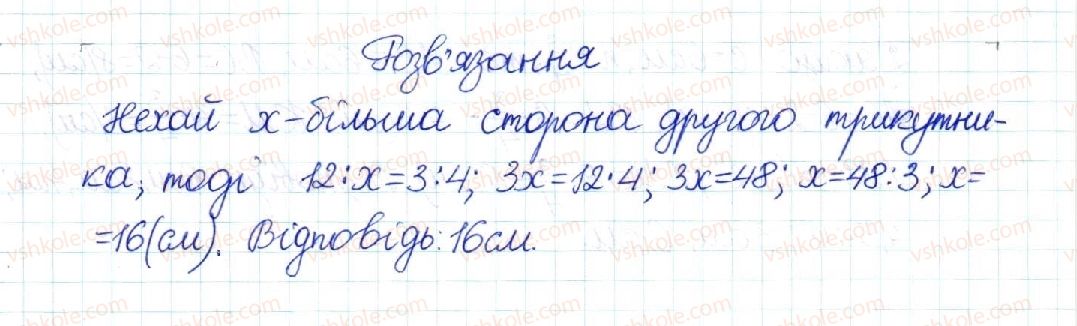 Розв'язання
Нехай x-більша сторона другого трикутни-
ка, тоді 12:x=3:4; 3x=12·4; 3x=48; x=48:3; x=
=16(см). Відповідь: 16см.